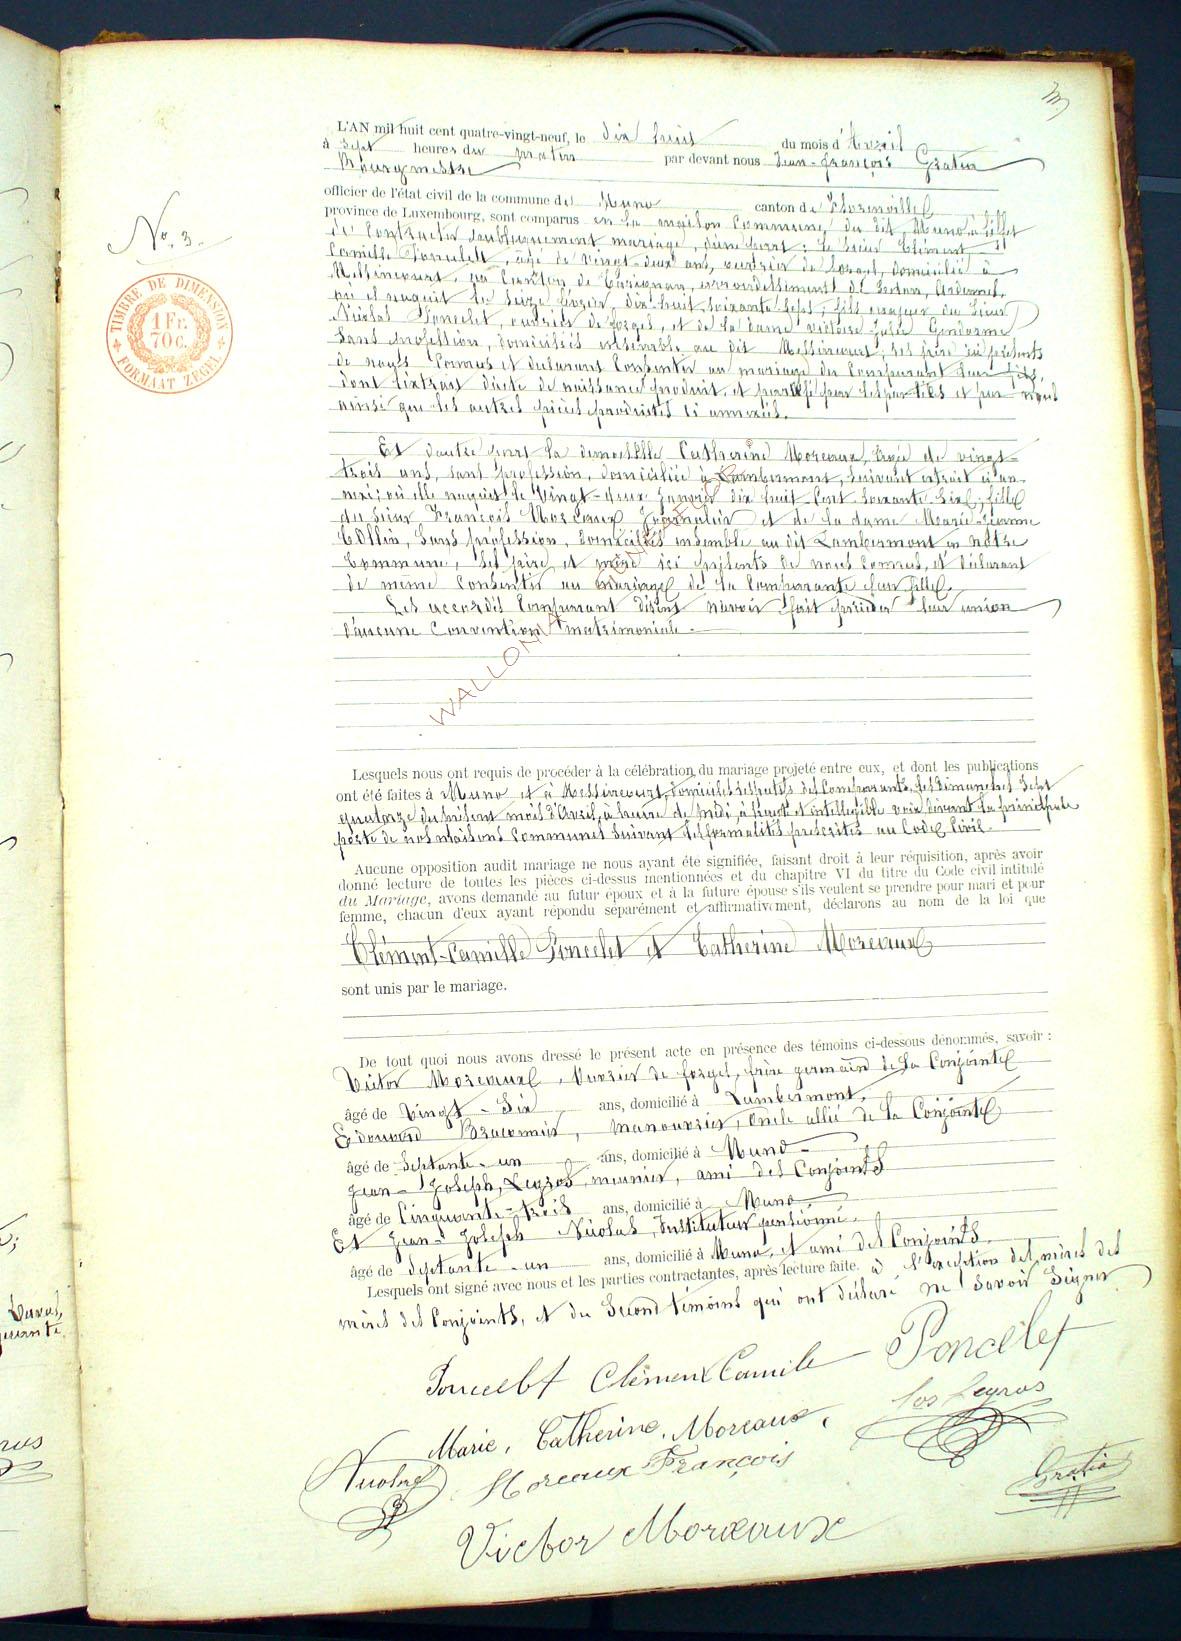 L'AN mil huit cent quatre-vingt-neuf, le dix huit du mois d'Avril
à sept heures du matin par devant nous Jean-François Gratia
Bourgmestre
officier de l'état civil de la commune de Muno canton de Florenville
province de Luxembourg, sont comparus en la maison Commune du dit Muno, à l'effet
de Contracter publiquement mariage, d'une part : le sieur Clément-
Camille Poncelet, âgé de vingt-deux ans, ouvrier de forges, domicilié à
Messincourt, au Canton de Carignan, arrondissement de Sedan, Ardennes,
où il naquit le seize février, dix huit soixante sept, fils majeur du Sieur
Nicolas Poncelet, ouvrier de forges, et de la dame Victoire Julie Gendarme
Sans profession, domiciliés ensemble au dit Messincourt, ses père ici présents
de nous Connus et déclarant Consentir au mariage du Comparant leur fils
dont l'extrait d'acte de naissance produit et paraphé par les parties et par nous
ainsi que les autres pièces produites ci annexées.
No. 3.
TIMBRE DE DIMENSION
1 Fr.
70 c.
FORMAAT ZEGEL
Et d'autre part la demoiselle Catherine Moreaux, âgée de vingt-
trois ans, sans profession, domiciliée à Lambermont, suivant extrait ci an-
nexé; où elle naquit le Vingt-deux Janvier dix huit Cent Soixante Six, fille
du sieur François Moreaux Journalier et de la dame Marie-Jeanne
Collin, Sans profession, domiciliés ensemble au dit Lambermont en notre
Commune, Ses père et mère ici présents de nous Connus, et déclarant
de même Consentir au mariage de la Comparante leur fille.
Les accordés Comparant disent n'avoir fait précéder leur union
d'aucune Convention matrimoniale.
WALLONIA
Lesquels nous ont requis de procéder à la célébration du mariage projeté entre eux, et dont les publications
ont été faites à Muno et à Messincourt, domiciles respectifs des Comparants, les Dimanches Sept
quatorze du présent mois d'Avril, à heure de midi, à haute et intelligible voix devant la principale
porte de nos maisons Communes Suivant les formalités prescrites au Code Civil.
Aucune opposition audit mariage ne nous ayant été signifiée, faisant droit à leur réquisition, après avoir
donné lecture de toutes les pièces ci-dessus mentionnées et du chapitre VI du titre du Code civil intitulé
du Mariage, avons demandé au futur époux et à la future épouse s'ils veulent se prendre pour mari et pour
femme, chacun d'eux ayant répondu séparément et affirmativement, déclarons au nom de la loi que
Clément-Camille Poncelet et Catherine Moreaux
sont unis par le mariage.
De tout quoi nous avons dressé le présent acte en présence des témoins ci-dessous dénommés, savoir :
Victor Moreaux, Ouvrier de forges, frère germain de la Conjointe
âgé de Vingt-Six ans, domicilié à Lambermont,
Edouard Braconnier, manouvrier, Oncle allié de la Conjointe
âgé de Septante-un ans, domicilié à Muno-
Jean-Joseph Legros, meunier, ami des Conjoints
âgé de Cinquante-trois ans, domicilié à Muno
Et Jean-Joseph Nicolas, Instituteur pensionné,
âgé de Septante-un ans, domicilié à Muno, et ami des Conjoints.
Lesquels ont signé avec nous et les parties contractantes, après lecture faite. à l'exception des mères des
mères des Conjoints, et du Second témoins qui ont déclaré ne Savoir Signer
Poncelet Clément Camile Poncelet
Marie, Catherine, Moreaux, Jos Legros
Nicolas Moreaux François Gratia
Victor Moreaux